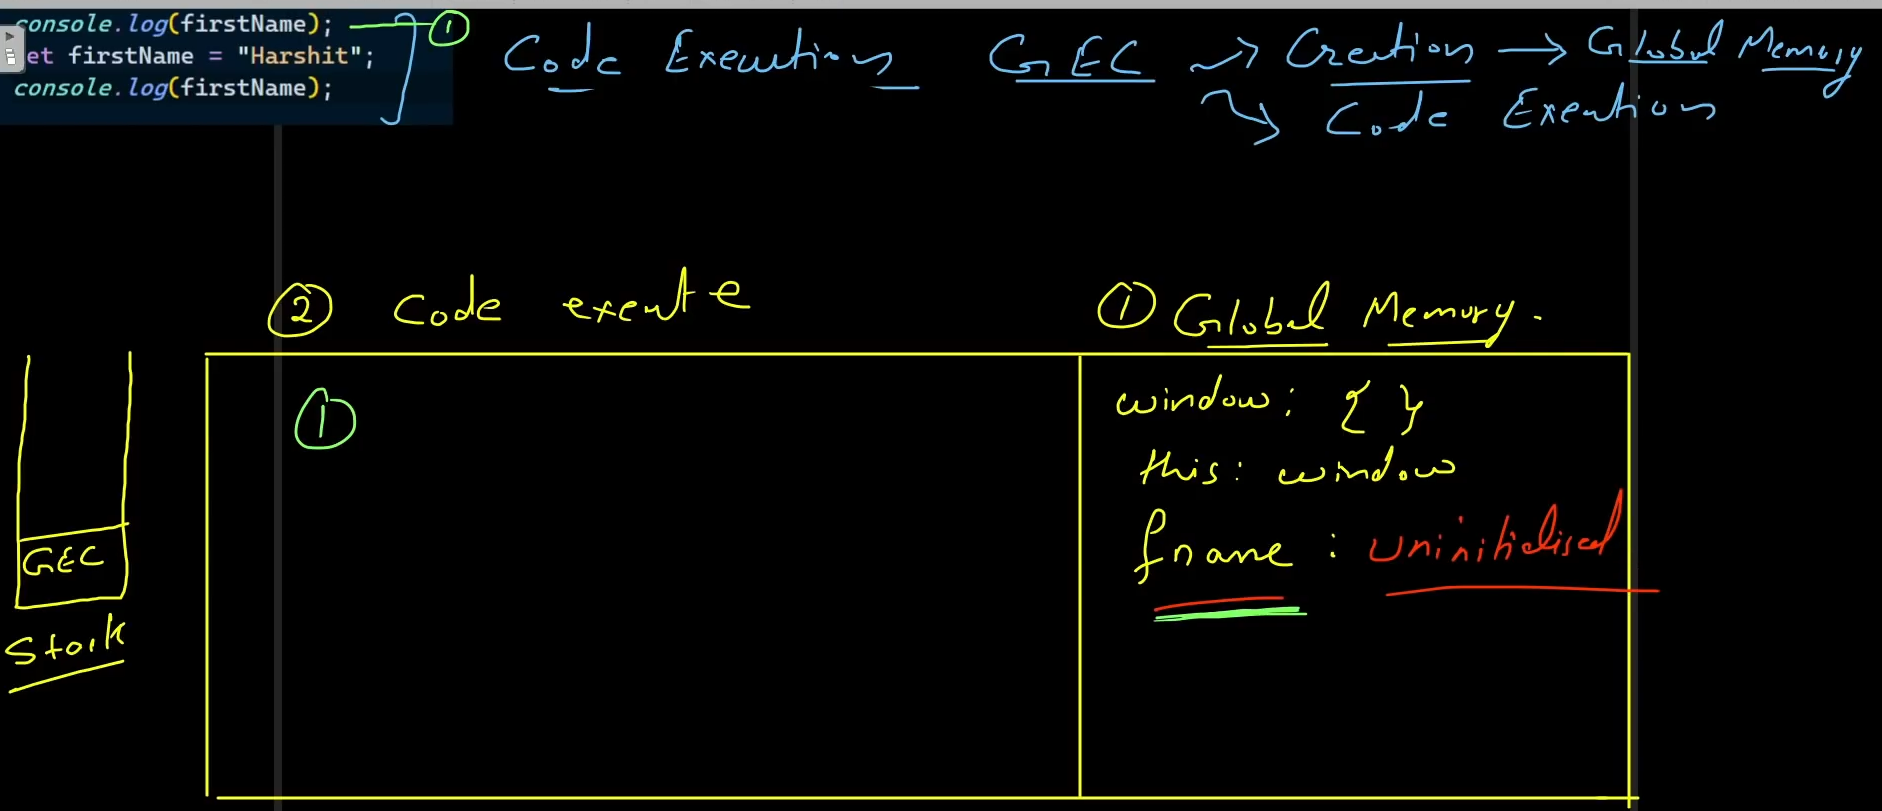 console.log(firstName); 1
et firstName = "Harshit";
console.log(firstName);
Code Execution GEC → Creation → Global Memory
Code Execution
2 Code execute
1 Global Memory.
1
window: { }
this: window
fname : uninitialised
GEC
Stack